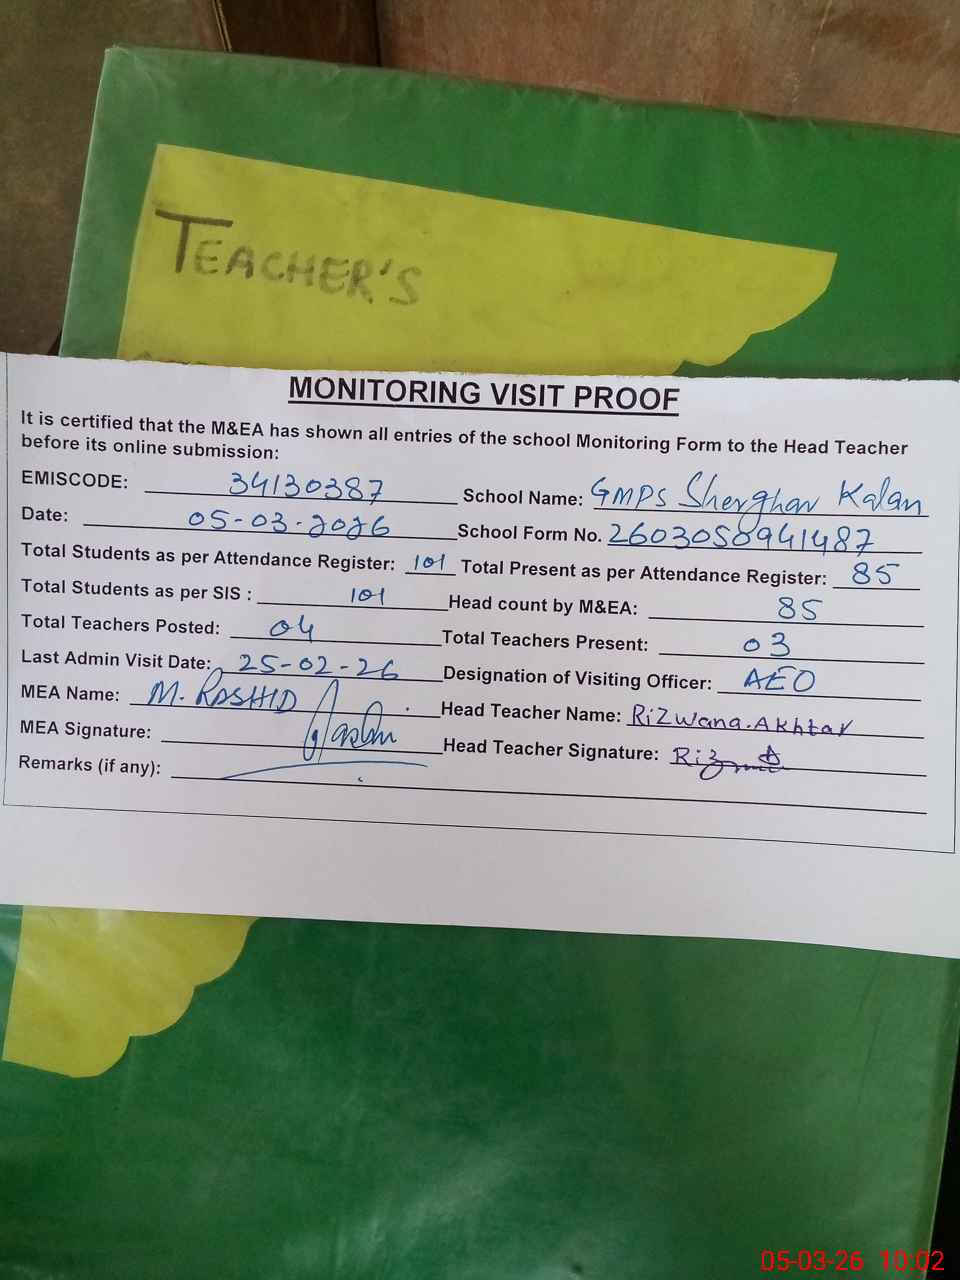 TEACHER'S
MONITORING VISIT PROOF
It is certified that the M&EA has shown all entries of the school Monitoring Form to the Head Teacher
before its online submission:
EMISCODE: 34130387 School Name: GMPS Sherghar Kalan
Date: 05-03-2026 School Form No. 2603050941487
Total Students as per Attendance Register: 101 Total Present as per Attendance Register: 85
Total Students as per SIS : 101 Head count by M&EA: 85
Total Teachers Posted: 04 Total Teachers Present: 03
Last Admin Visit Date: 25-02-26 Designation of Visiting Officer: AEO
MEA Name: M. RASHID Head Teacher Name: Rizwana.Akhtar
MEA Signature: Head Teacher Signature:
Remarks (if any):
05-03-26 10:02